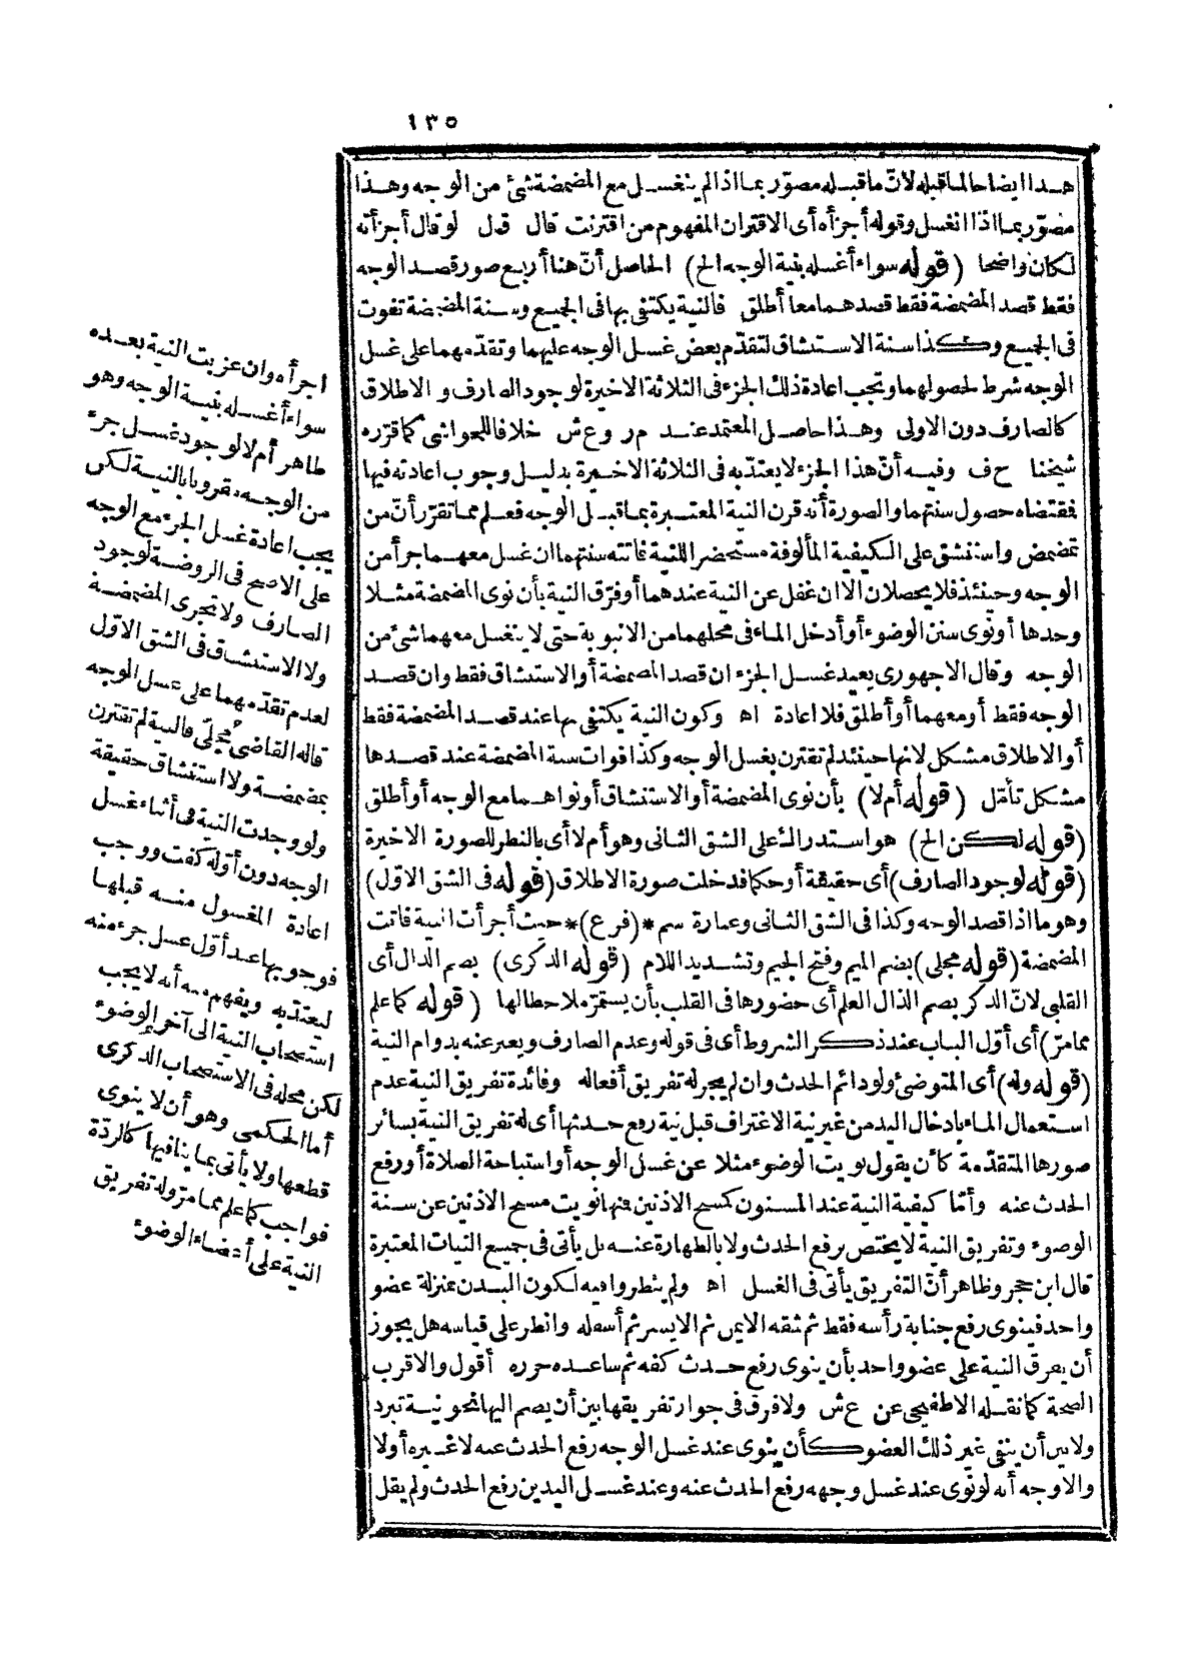 ١٣٥
هذا ايضاحا لما قبله لان ما قبله مصوّر بما اذا لم ينغسل مع المضمضة شئ من الوجه وهذا
مصوّر بما اذا انغسل وقوله أجزأه أى الاقتران المفهوم من اقترنت قال ق ل لو قال أجزأته
لكان واضحا (قوله سواء أغسله بنية الوجه الح) الحاصل أنّ هنا أربع صور قصد الوجه
فقط قصد المضمضة فقط قصدهما معا أطلق فالنية يكتفى بها فى الجميع وسنة المضمضة تفوت
فى الجميع وكذا سنة الاستنشاق لتقدّم بعض غسل الوجه عليهما وتقدّمهما على غسل
الوجه شرط لحصولهما وتجب اعادة ذلك الجزء فى الثلاثة الاخيرة لوجود الصارف و الاطلاق
كالصارف دون الاولى وهذا حاصل المعتمد عند م ر و ع ش خلافا للبحواشى كما قرّره
شيخنا ح ف وفيه أنّ هذا الجزء لا يعتدّ به فى الثلاثة الاخيرة بدليل وجوب اعادته فيها
فقتضاه حصول سنتهما والصورة أنه قرن النية المعتبرة بما قبل الوجه فعلم مما تقرّر أنّ من
تمضمض واستنشق على الكيفية المألوفة مستحضرا للنية فاتته سنتهما ان غسل معهما جزأ من
الوجه وحينئذ فلا يحصلان الا ان غفل عن النية عندهما أو فرّق النية بأن نوى المضمضة مثلا
وحدها أو نوى سنن الوضوء أو أدخل الماء فى محلهما من الانبوبة حتى لا ينغسل معهما شئ من
الوجه وقال الاجهورى يعيد غسل الجزء ان قصد المضمضة أو الاستنشاق فقط وان قصد
الوجه فقط أو معهما أو أطلق فلا اعادة اه وكون النية يكتفى بها عند قصد المضمضة فقط
أو الاطلاق مشكل لانها حينئذ لم تقترن بغسل الوجه وكذا فوات سنة المضمضة عند قصدها
مشكل تأمّل (قوله أم لا) بأن نوى المضمضة أو الاستنشاق أو نواهما مع الوجه أو أطلق
(قوله لكن الح) هو استدراك على الشق الثانى وهو أم لا أى بالنظر للصورة الاخيرة
(قوله لوجود الصارف) أى حقيقة أو حكما فدخلت صورة الاطلاق (قوله فى الشق الاوّل)
وهو ما اذا قصد الوجه وكذا فى الشق الثانى وعبارة سم *(فرع)* حيث أجزأت النية فاتت
المضمضة (قوله مجلى) بضم الميم وفتح الجيم وتشديد اللام (قوله الذكرى) بضم الذال أى
القلبى لانّ الذكر بضم الذال العلم أى حضورها فى القلب بأن يستمرّ ملاحظا لها (قوله كما علم
مما مرّ) أى أوّل الباب عند ذكر الشروط أى فى قوله وعدم الصارف ويعبر عنه بدوام النية
(قوله وله) أى المتوضئ ولو دائم الحدث وان لم يجز له تفريق أفعاله وفائدة تفريق النية عدم
استعمال الماء بادخال اليد من غير نية الاغتراف قبل نية رفع حدثها أى له تفريق النية بسائر
صورها المتقدّمة كأن يقول نويت الوضوء مثلا عن غسل الوجه أو استباحة الصلاة أو رفع
الحدث عنه وأمّا كيفية النية عند المسنون كمسح الاذنين فنها نويت مسح الاذنين عن سنة
الوضوء وتفريق النية لا يختص برفع الحدث ولا بالطهارة عنه بل يأتى فى جميع النيات المعتبرة
قال ابن حجر وظاهر أنّ التفريق يأتى فى الغسل اه ولم ينظروا فيه لكون البدن بمنزلة عضو
واحد فينوى رفع جنابة رأسه فقط ثم شقه الايمن ثم الايسر ثم أسفله وانظر على قياسه هل يجوز
أن يفرق النية على عضو واحد بأن ينوى رفع حدث كفه ثم ساعده حرره أقول والاقرب
الصحة كما نقله الاطفيحى عن ع ش ولا فرق فى جواز تفريقها بين أن يضم اليها نحو نية تبرد
ولا بين أن ينفى غير ذلك العضو كأن ينوى عند غسل الوجه رفع الحدث عنه لا غيره أو لا
والاوجه أنه لو نوى عند غسل وجهه رفع الحدث عنه وعند غسل اليدين رفع الحدث ولم يقل
اجزأه وان عزبت النية بعده
سواء أغسله بنية الوجه وهو
ظاهر أم لا لوجود غسل جزء
من الوجه مقرونا بالنية لكن
يجب اعادة غسل الجزء مع الوجه
على الاصح فى الروضة لوجود
الصارف ولا تجزى المضمضة
ولا الاستنشاق فى الشق الاوّل
لعدم تقدّمهما على غسل الوجه
قاله القاضى مُجلّى فالنية لم تقترن
بمضمضة ولا استنشاق حقيقة
ولو وجدت النية فى أثناء غسل
الوجه دون أوّله كفت ووجب
اعادة المغسول منه قبلها
فوجوبها عند أوّل غسل جزء منه
ليعتدّ به ويفهم منه أنه لا يجب
استصحاب النية الى آخر الوضوء
لكن محله فى الاستصحاب الذكرى
أما الحكمى وهو أن لا ينوى
قطعها ولا يأتى بما ينافيها كالردّة
فواجب كما علم مما مرّ وله تفريق
النية على أعضاء الوضوء